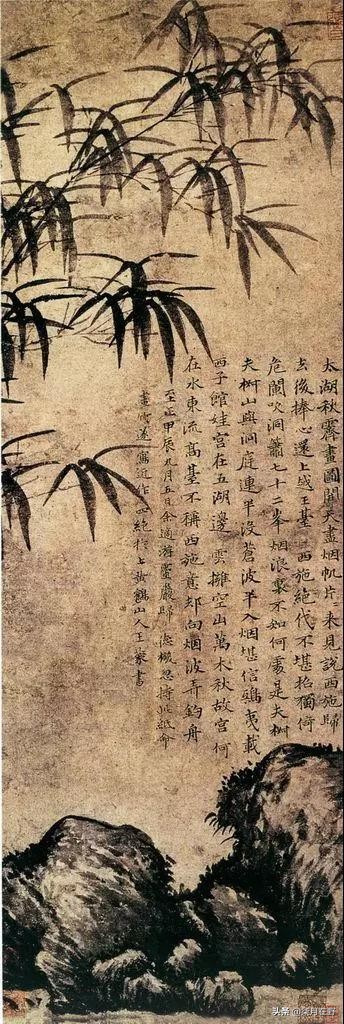 太湖秋霽畫圖開天盡烟帆片片來見說西施歸
去後捧心還上越王臺西施絕代不堪招獨倚
危闌吹洞簫七十二峯烟浪裏不知何處是夫椒
夫椒山與洞庭連半沒蒼波半入烟堪信鴟夷載
西子館娃宮在五湖邊雲擁空山萬木秋故宮何
在水東流高臺不稱西施意却向烟波弄釣舟
至正甲辰九月五日余適游靈巖歸德機忽持此紙命
畫竹遂寫近作四絕於上黃鶴山人王蒙書
头条